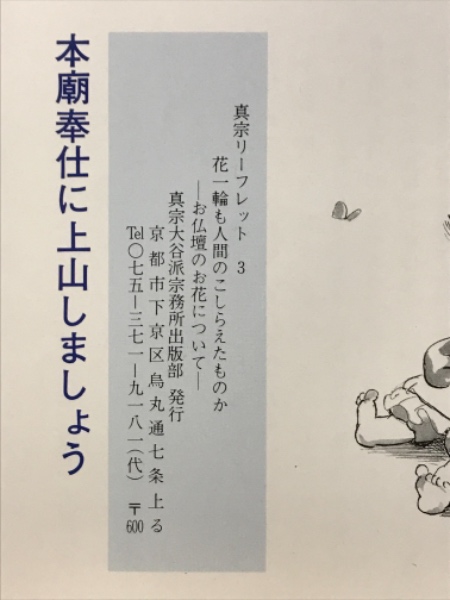 真宗リーフレット 3
花一輪も人間のこしらえたものか
―お仏壇のお花について―
真宗大谷派宗務所出版部 発行
京都市下京区烏丸通七条上る
Tel〇七五―三七一―九一八一(代) 〒600
本廟奉仕に上山しましょう